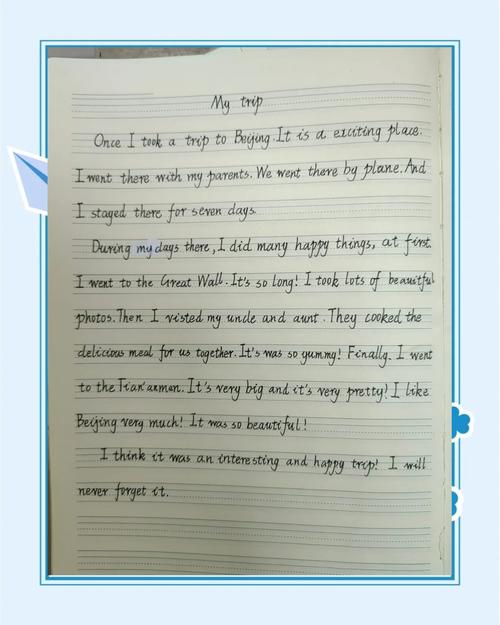 My trip
Once I took a trip to Beijing. It is a exciting place.
I went there with my parents. We went there by plane. And
I stayed there for seven days.
During my days there, I did many happy things, at first.
I went to the Great Wall. It's so long! I took lots of beautiful
photos. Then I visted my uncle and aunt. They cooked the
delicious meal for us together. It's was so yummy! Finally. I went
to the Tian'anmen. It's very big and it's very pretty! I like
Beijing very much! It was so beautiful!
I think it was an interesting and happy trip! I will
never forget it.